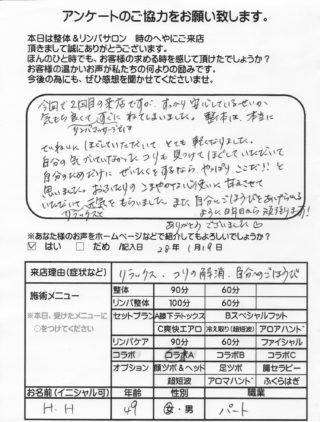 アンケートのご協力をお願い致します。
本日は整体＆リンパサロン 時のへやにご来店
頂きまして誠にありがとうございます。
ほんのひと時でも、お客様の求める時を感じて頂けたでしょうか？
お客様の温かいお声が私たちの何よりの励みです。
今後の為にも、ぜひ感想を聞かせてくださいませ。
今回で2回目の来店ですが、すっかり安心しているせいか
気もち良くて すぐに ねてしまいました。 整体は、本当に
リンパマッサージでは
ていねいに ほぐしていただいて とても 軽くなりました。
自分の気づいていなかった コリも 見つけて ほぐしていただいて
自分のためだけに ぜいたくをするなら、やっぱり ここだ!! と
思いました。
いただいて、元気をもらいました。また、自分にごほうびをあげられる
リラックスと
ように明日から頑張ります!
ありがとうございました
※あなた様のお声をホームページなどで紹介してもよろしいでしょうか？
☑ はい □ だめ /記入日 28年 1月19日
来店理由(症状など) リラックス、コリの解消、自分へのごほうび
施術メニュー
※本日、受けたメニューに
○をつけてください
整体 90分 60分
リンパ整体 100分 60分
セットプラン A膝下デトックス Bスペシャルフット
C爽快エアロ 冷え取り(超短波) アロアハンド
リンパケア 90分 60分 フェイシャル
コラボ コラボA コラボB コラボC
オプション 顔ツボ＆ヘッド 足ツボ 腸セラピー
超短波 アロマハンド ふくらはぎ
お名前(イニシャル可) 年齢 性別 職業
H.H 49 女・男 パート